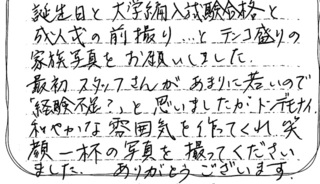 誕生日と大学編入試験合格と
成人式の前撮り…とテンコ盛りの
家族写真をお願いしました。
最初スタッフさんがあまりに若いので
「経験不足?」と思いましたが、トンデモナイ
和やかな雰囲気を作ってくれ笑
顔一杯の写真を撮ってください
ました。ありがとうございます。